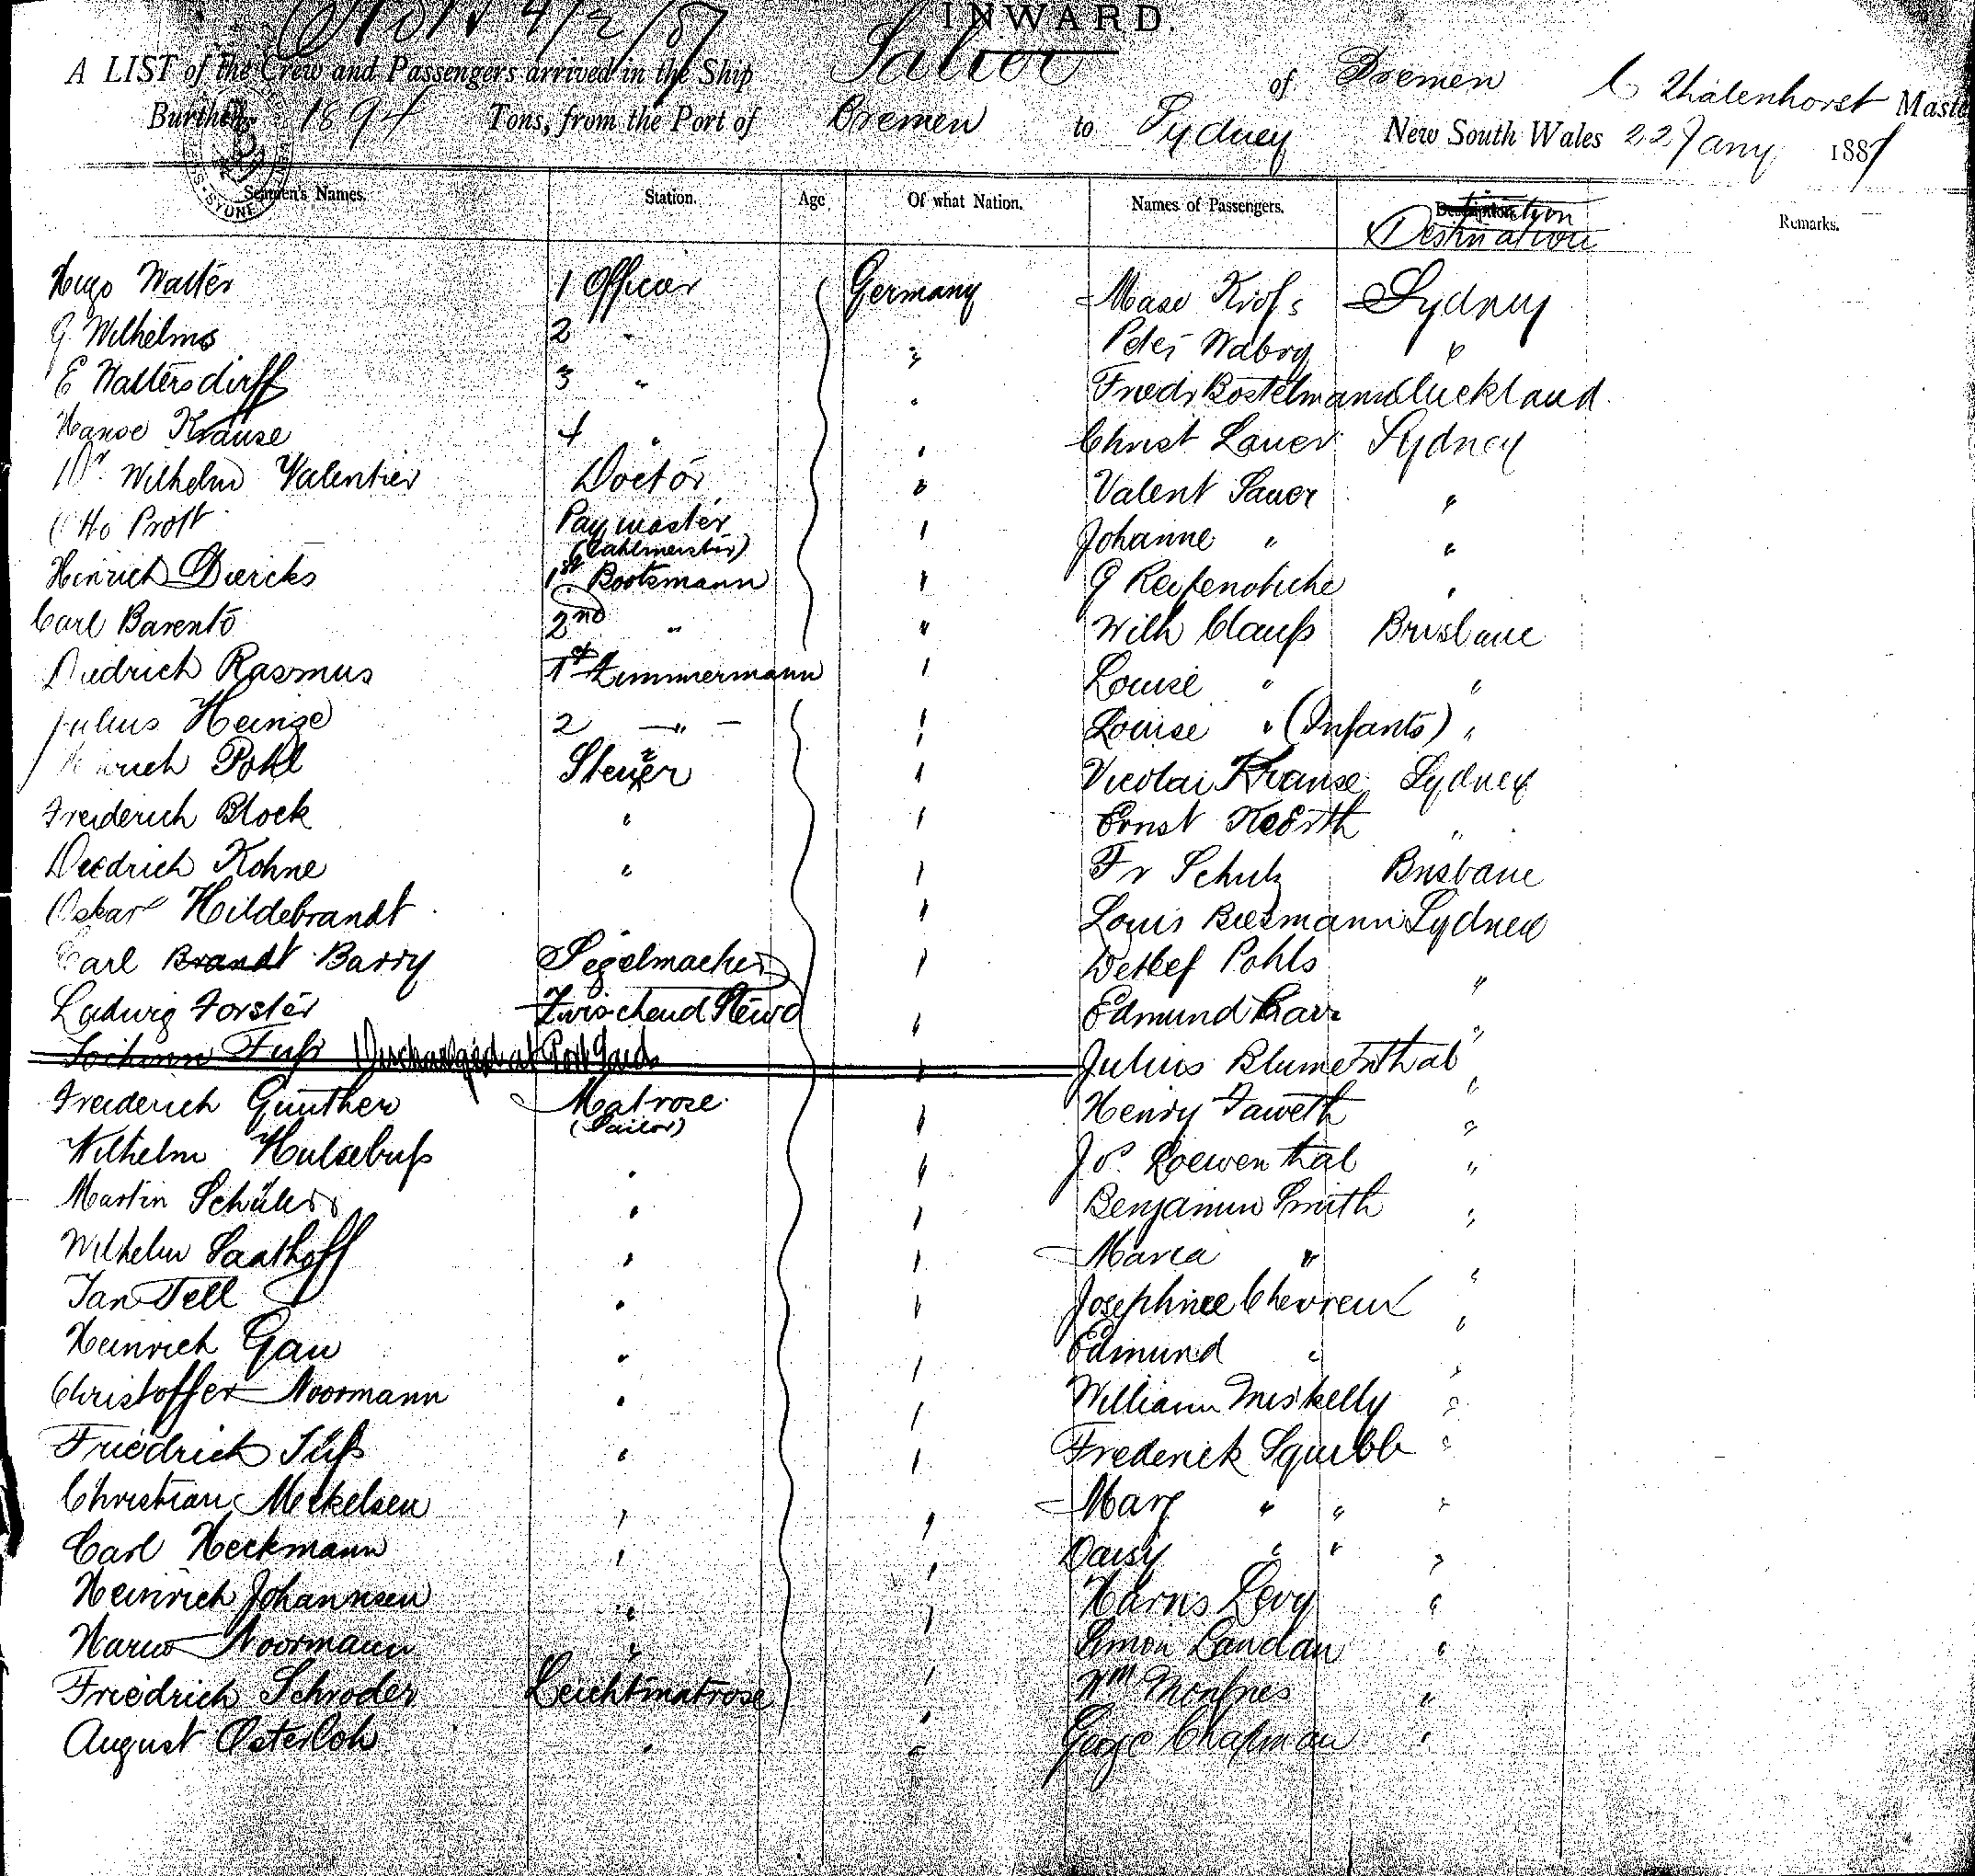 INWARD.
A LIST of the Crew and Passengers arrived in the Ship Salier of Bremen C Thalenhorst Maste
Burthen 1894 Tons, from the Port of Bremen to Sydney New South Wales 22 Jany 1887
Seamen's Names. Station. Age Of what Nation. Names of Passengers. Destination Remarks.
Hugo Walter 1 Officer Germany Sydney
G Wilhelms 2 " " Peter "
E Waltersdorff 3 " " Fredr Bostelmann Auckland
Krause 4 " " Christ Lauer Sydney
Dr Wilhelm Valentier Doctor " Valent Sauer "
Otto Prott Paymaster " Johanne " "
(Zahlmeister)
Hinrich Diercks 1st Bootsmann " G "
Carl Barento 2nd " " Wilh Clauß Brisbane
Diedrich Rasmus 1st Zimmermann " Louise " "
Julius Heinze 2 " " Louise " (Infants) "
Hinrich Pohl Steurer " Nicolai Krause Sydney
Freiderich Block " " Ernst "
Diedrich Kohne " " Fr Schulz Brisbane
Oskar Hildebrandt " " Louis Biesmann Sydney
Carl Brandt Barry Segelmacher " Detlef Pohls "
Ludwig Forster Zwischend Steward " Edmund "
Johann Fuß Discharged at Port Said " Julius Blumenthal "
Freiderich Gunther Matrose " Henry Faweth "
(Sailor)
Wilhelm Hulsebuß " " Js. Loewenthal "
Martin Schülers " " Benjamin Smith "
Wilhelm Saathoff " " Maria " "
Jan Tell " " Josephine Chevreux "
Heinrich Gau " " Edmund " "
Christoffer Noormann " " William Miskelly "
Friedrich Süß " " Frederick Squibb "
Christian Meckelsen " " Mary " " "
Carl Heckmann " " Daisy " " "
Heinrich Johannsen " " Harris Levy "
Harm Noormann " " Simon Landau "
Friedrich Schroder Leichtmatrose " Wm "
August Osterloh " " George Chapman "